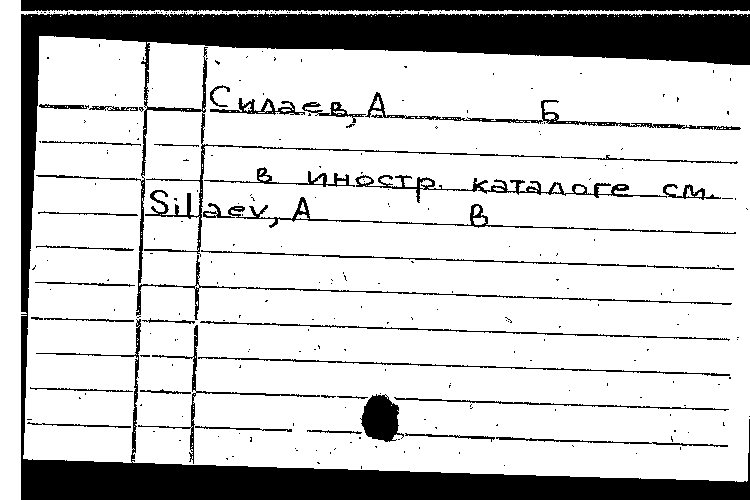 Силаев, А Б
в иностр. каталоге см.
Silaev, A B